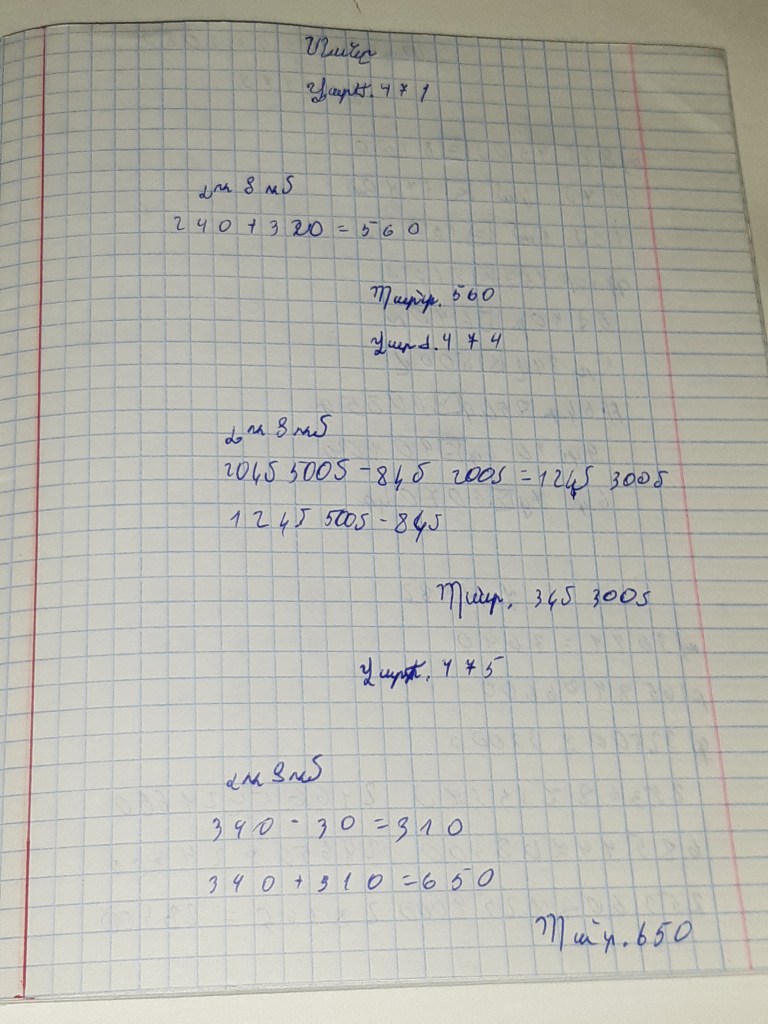 Վարժ. 471
Լուծում
240 + 320 = 560
Պատ. 560
Վարժ. 474
Լուծում
20կգ 500գ - 8կգ 200գ = 12կգ 300գ
12կգ 500գ - 8կգ
Պատ. 3կգ 300գ
Վարժ. 475
Լուծում
340 - 30 = 310
340 + 310 = 650
Պատ. 650